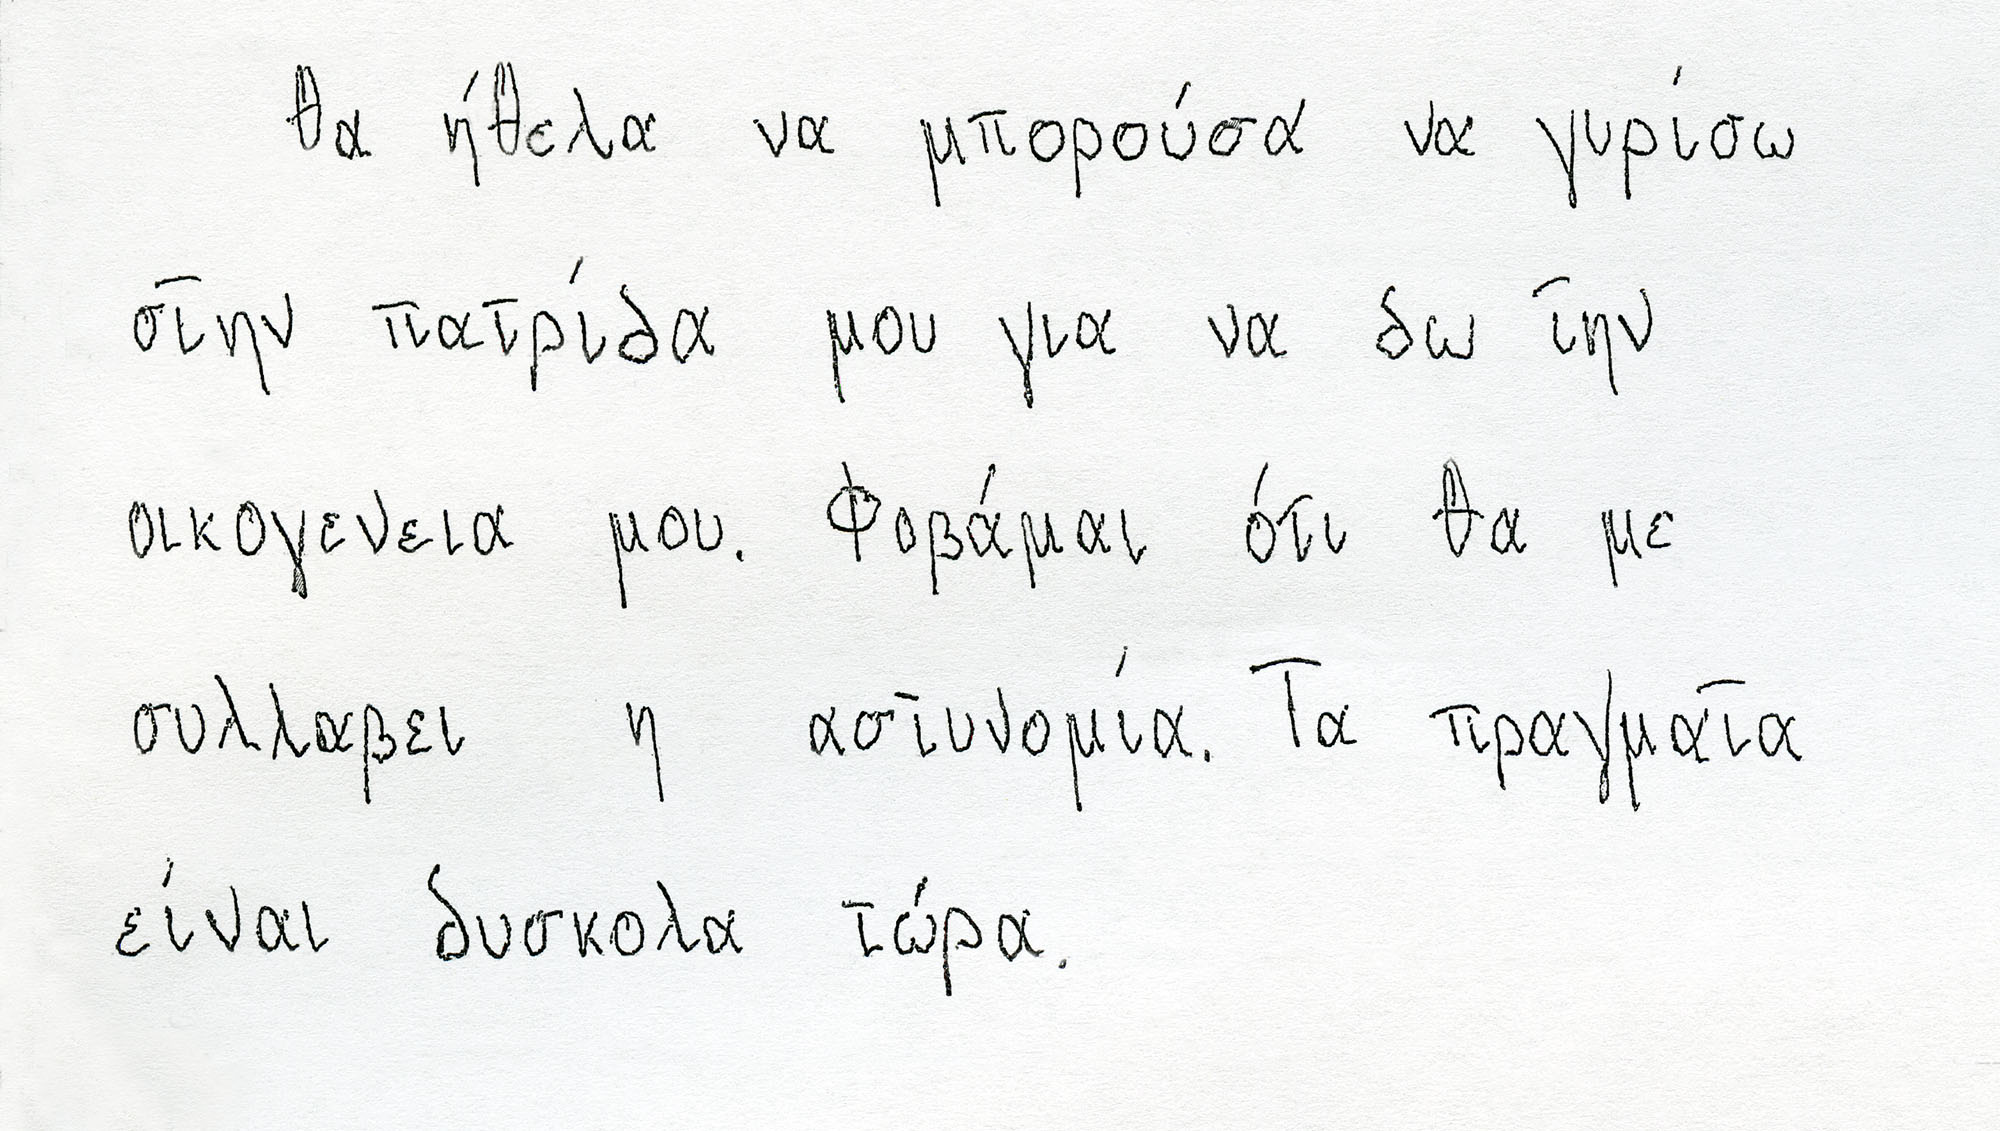 θα ήθελα να μπορούσα να γυρίσω
στην πατρίδα μου για να δω την
οικογενεια μου. Φοβάμαι ότι θα με
συλλαβει η αστυνομία. Τα πραγματα
είναι δυσκολα τώρα.